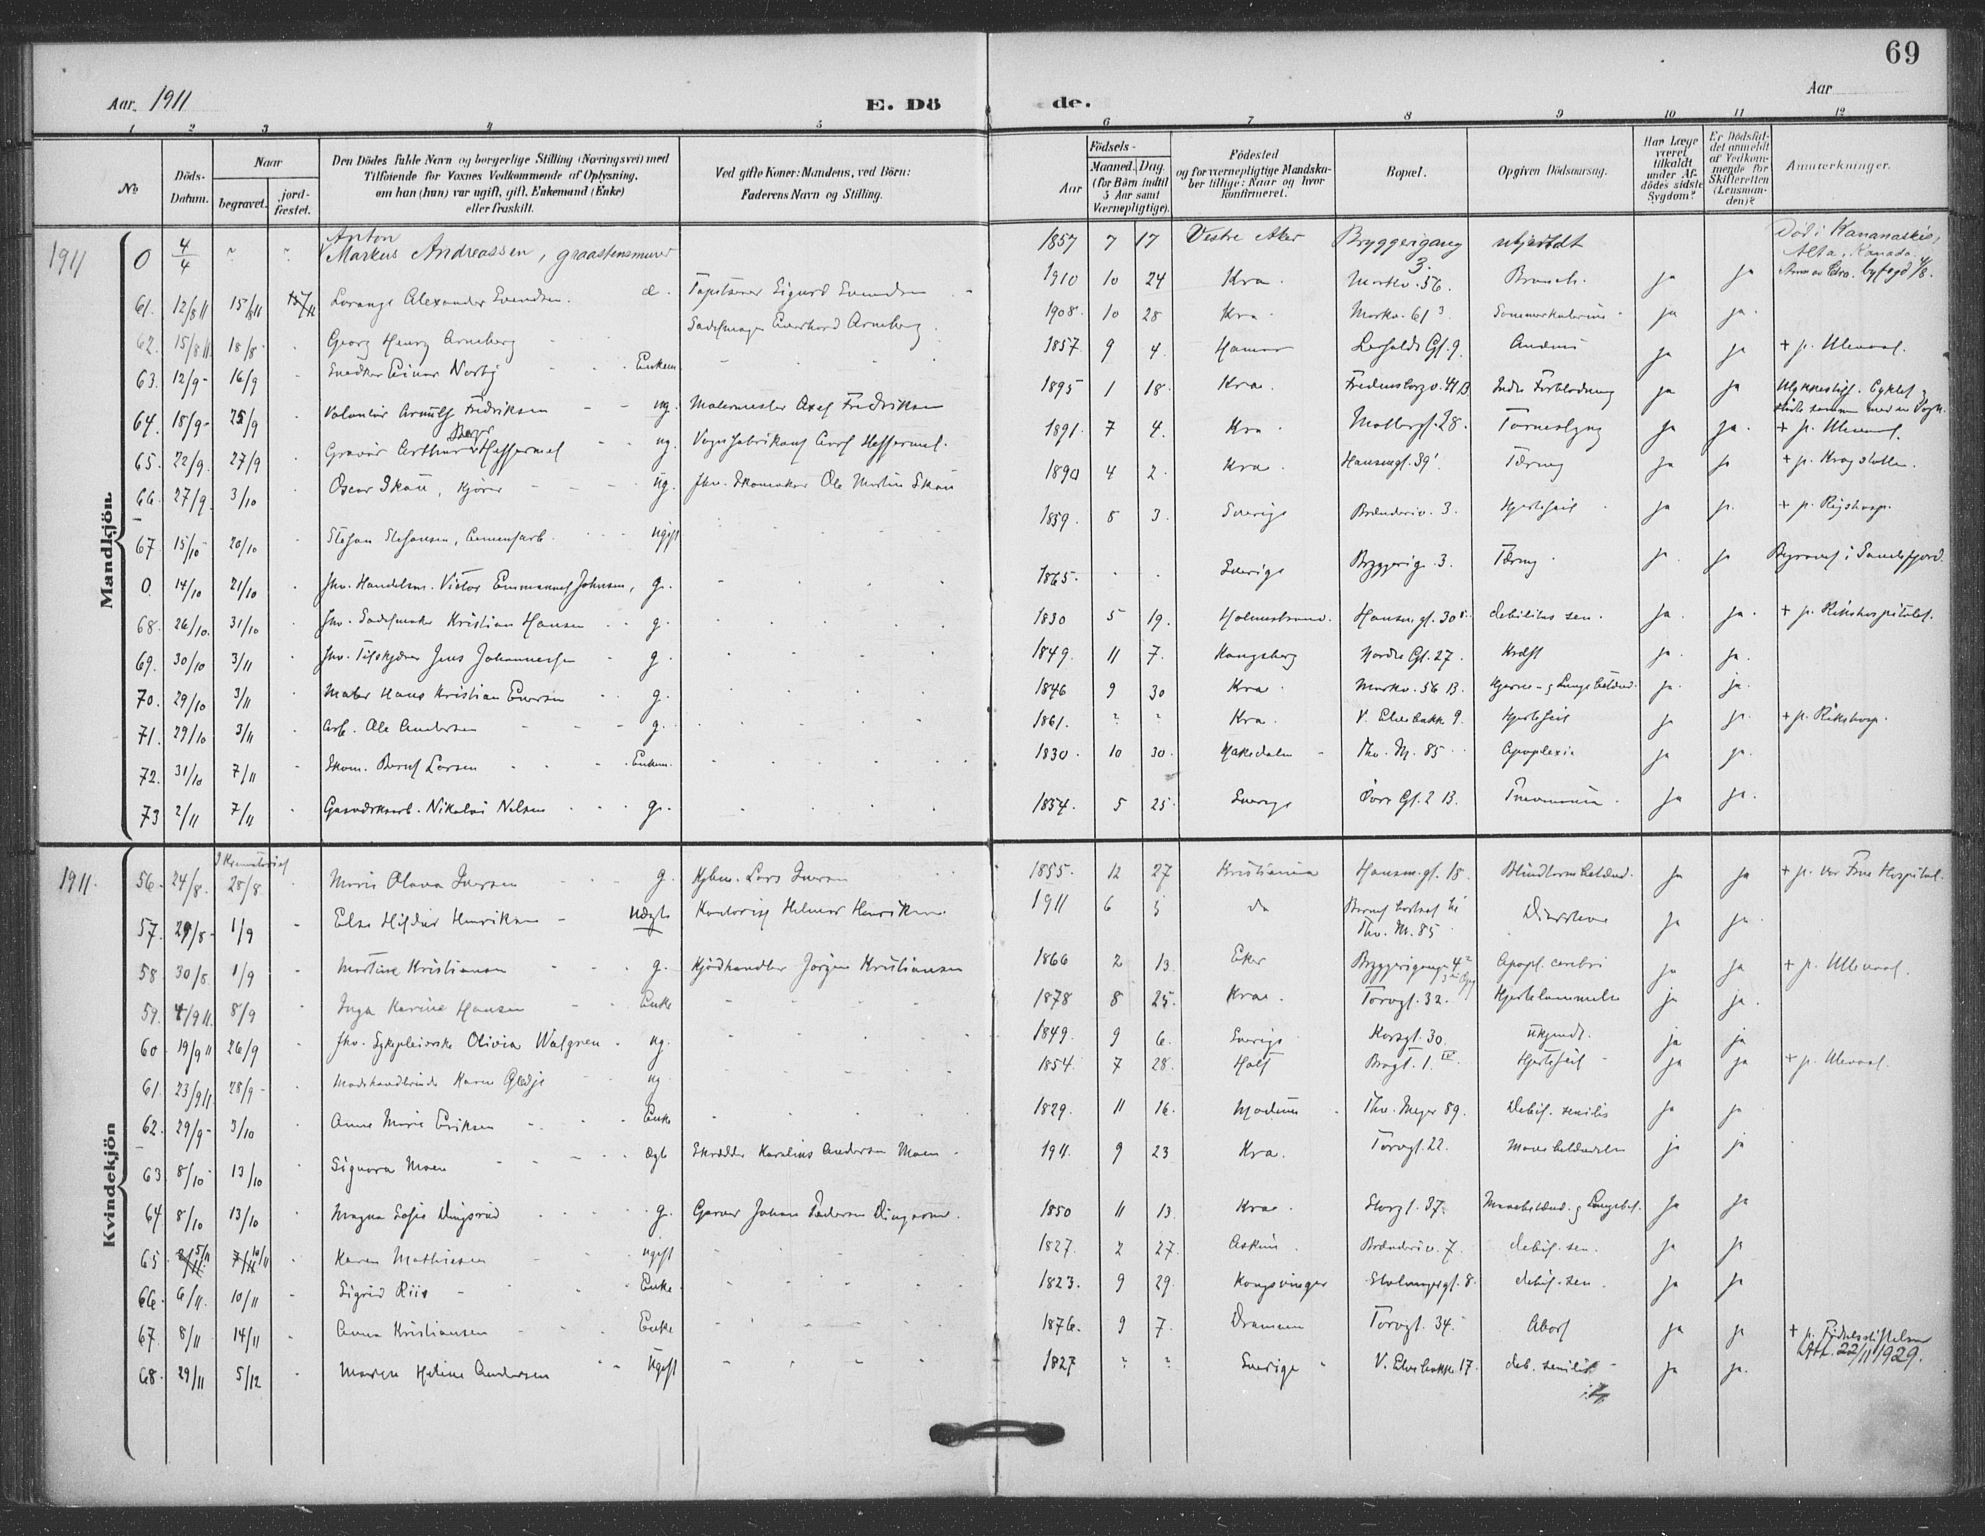 69
Aar 1911 E. Dö de. Aar
1 2 3 4 5 6 7 8 9 10 11 12
No
Döds-Datum.
Naar begravet. jord-fæstet.
Den Dödes fulde Navn og borgerlige Stilling (Næringsvei) med Tilföiende for Voxnes Vedkommende af Oplysning, om han (hun) var ugift, gift, Enkemand (Enke) eller fraskilt.
Ved gifte Koner: Mandens, ved Börn: Faderens Navn og Stilling.
Födsels-
Aar Maaned. Dag. (for Börn indtil 5 Aar samt Værnepligtige).
Födested og for værnepligtige Mandskaber tillige: Naar og hvor konfirmeret.
Bopæl.
Opgiven Dödsaarsag.
Har Læge været tilkaldt under Afdödes sidste Sygdom?
Er Dödsfaldet anmeldt af Vedkommende for Skifteretten (Lensmanden)?
Anmærkninger.
Mandkjön
1911 0 4/4 " " Anton Markus Andreassen, graastensmurer 1857 7 17 Vestre Aker Bryggerigang 3. ukjendt Död i Kananaskis, Alta, Kanada.
61. 12/8 11 15/8 11 Alexander Svendsen. Tapetserer Sigurd Svendsen 1910 10 24 Kra. Markv. 56. Bronch. ja ja
62. 15/8 11 18/8 Georg Henry Arneberg Sadelmager Arneberg. 1908. 10 28 Kra. Markv. 61 3 ja ja.
63. 12/9 16/9 Snedker Einar Norby Enkem. 1857. 9 4. Hamar Gt. 9. ja ja + p. Ullevaal.
64. 18/9 25/9 Volontör Arnulf Fredriksen ug. Malermester Axel Fredriksen 1895 1 18. Kra. Fredensborgv. 41 B Indre Forblødning ja ja
65. 22/9. 27/9 Gravör Arthur Berger Heffermel ug. Vognfabrikant Carl Heffermel. 1891. 7 4. Kra. 28. ja ja. + p. Ullevaal.
66 27/9 3/10 Oscar Skau, kjører ug. fhv. Skomaker Ole Martin Skau 1890 4 2. Kra. Hausmgt. 39 Tæring ja ja + p. Krogstøtten.
67 15/10 20/10 Stefan Stefansen, Cementarb. ugift 1859. 8 3. Sverige Brænneriv. 3. Hjertefeil ja ja. + p. Rigshosp.
0. 14/10 21/10 fhv. Handelsm. Victor Emmanuel Johnsen, g. 1865. Sverige Bryggerig. 3. Tæring. ja. ja Begravet i Sandefjord.
68. 26/10. 31/10 fhv. Sadelmaker Kristian Hansen g. 1830 5 19. Holmestrand. Hausm. gt. 30 debilitas sen. ja. ja. + p. Rikshospitalet.
69. 30/10 3/11 fhv. Jens Johannesen g. 1849. 11 7. Kongsberg Nordre Gt. 27. Kræft ja. ja.
70. 29/10 3/11 Maler Hans Kristian Eversen g. 1846 9 30 Kra. Markv. 56 B. Hjerne- og Lungebetænd. ja. ja.
71. 29/10 3/11 Arb. Ole Andersen g. 1861. " " Kra. V. Elvebakke 9. Hjertefeil ja ja. + p. Rikshosp.
72. 31/10 7/11 Skom. Bernt Larsen Enkem. 1830 10 30. Hakedalen Thv. M. 85 Apoplexia ja ja.
73 2/11 7/11 Gasværksarb. Nikolai Nilsen g. 1834. 5 25. Sverige Övre Gt. 2 B. Pneumonia. ja ja.
Kvindekjön
1911. I Krematoriet
56. 24/8. 28/8 Marie Olava Iversen g. Kjbm. Lars Iversen 1855. 12 27 Kristiania Hausm. gt. 15. Blindtarmbetænd. ja ja + p. Vor Frue Hospital.
57. 29/8 1/9 Else Henriksen Uægte Kontorist Helmer Henriksen. 1911 6 5 do Thv. M. 85. ja ja.
58. 30/8 1/9 Martine Kristiansen g. Kjødhandler Jørgen Kristiansen 1866 2 13. Eker Bryggerigang. 4 Apopl. cerebri ja ja + p. Ullevaal.
59. 4/9 11. 8/9 Inga Karine Hansen Enke 1878 8 25. Kra. Torvgt. 32. Hjertelammelse ja ja.
60 19/9 11 26/9 fhv. Sykepleierske Olivia Walgren. ug. 1849. 9 6. Sverige Korsgt. 30. ukjendt. ja ja
61. 23/9 11 28/9 Madshandlerinde Karen Gledje ug. 1854. 7 28. Holt 1. IV Hjertefeil ja ja + p. Ullevaal.
62. 29/9 3/10 Anne Marie Eriksen Enke 1829. 11 16. Modum Thv. Meyer 89. Debil. senilis ja ja
63. 8/10 13/10 Signora Moen Ægte Skrædder Karelius Andersen Moen 1911. 9 23 Kra. Torvgt. 22. Mavebetændelse ja ja
64 8/10 13/10 Magna Sofie Dingsrud g. Garver Johan Pedersen Dingsrud. 1850 11 13. Kra. Storgt. 37. Mavebetænd. og Lungebet. ja ja
65 5/11 10/11 Karen Mathiesen ugift 1827. 2 27. Askim. Brænneriv. 7. debil. sen. ja ja
66. 6/11. 10/11 Sigrid Riis Enke. 1823. 9 29. Kongsvinger gt. 8. debil. sen. ja ja
67. 8/11 14/11 Anna Kristiansen Enke 1876. 9 7. Drammen Torvgt. 34. Abort ja ja + p. Fødselsstiftelsen Att. 22/11 1929.
68. 29/11 5/12 Maren Heline Andersen Ugift 1827 " " Sverige V. Elvebakke 17. deb. senilis ja ja.